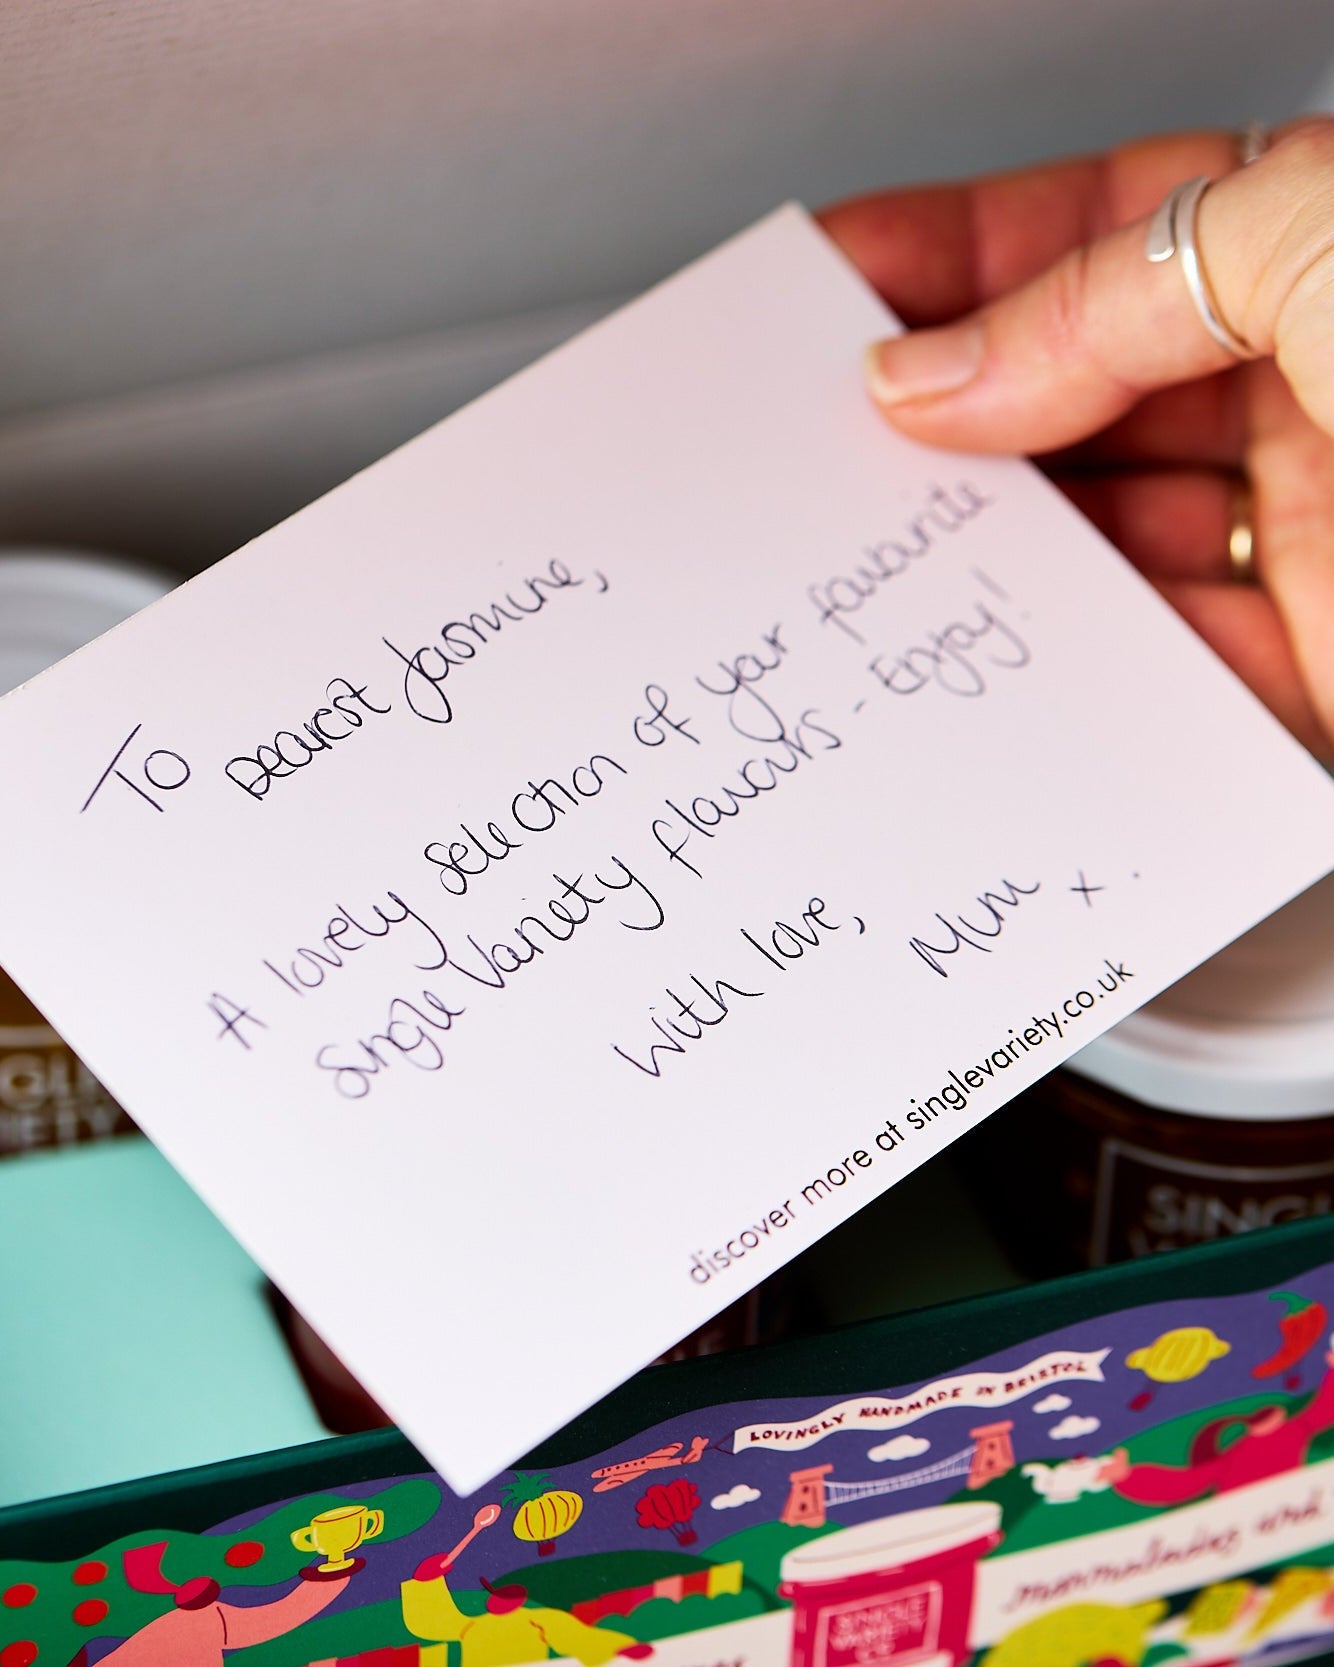 To Dearest Jasmine,
A lovely selection of your favourite
Single Variety flavours - Enjoy!
With love,
Mum x.
discover more at singlevariety.co.uk
SINGL
LOVINGLY HANDMADE IN BRISTOL
marmalades and
SINGLE
VARIETY
CO